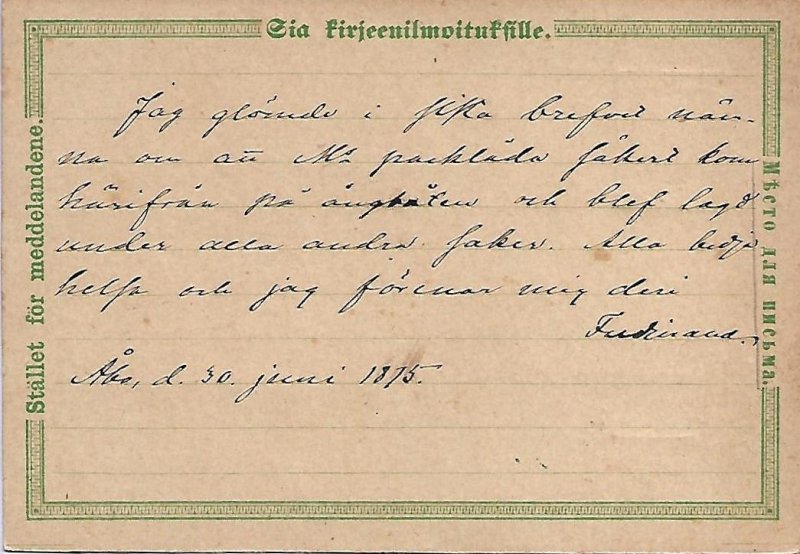 Sia kirjeenilmoituksille.
Stället för meddelandene.
Мѣсто для письма.
Jag glömde i sista brefvet näm-
na om att Ms packlåda säkert kom
härifrån på ångbåten och blef lagd
under alla andra saker. Alla bedja
helsa och jag förenar mig deri
Ferdinand.
Åbo, d. 30. juni 1875.